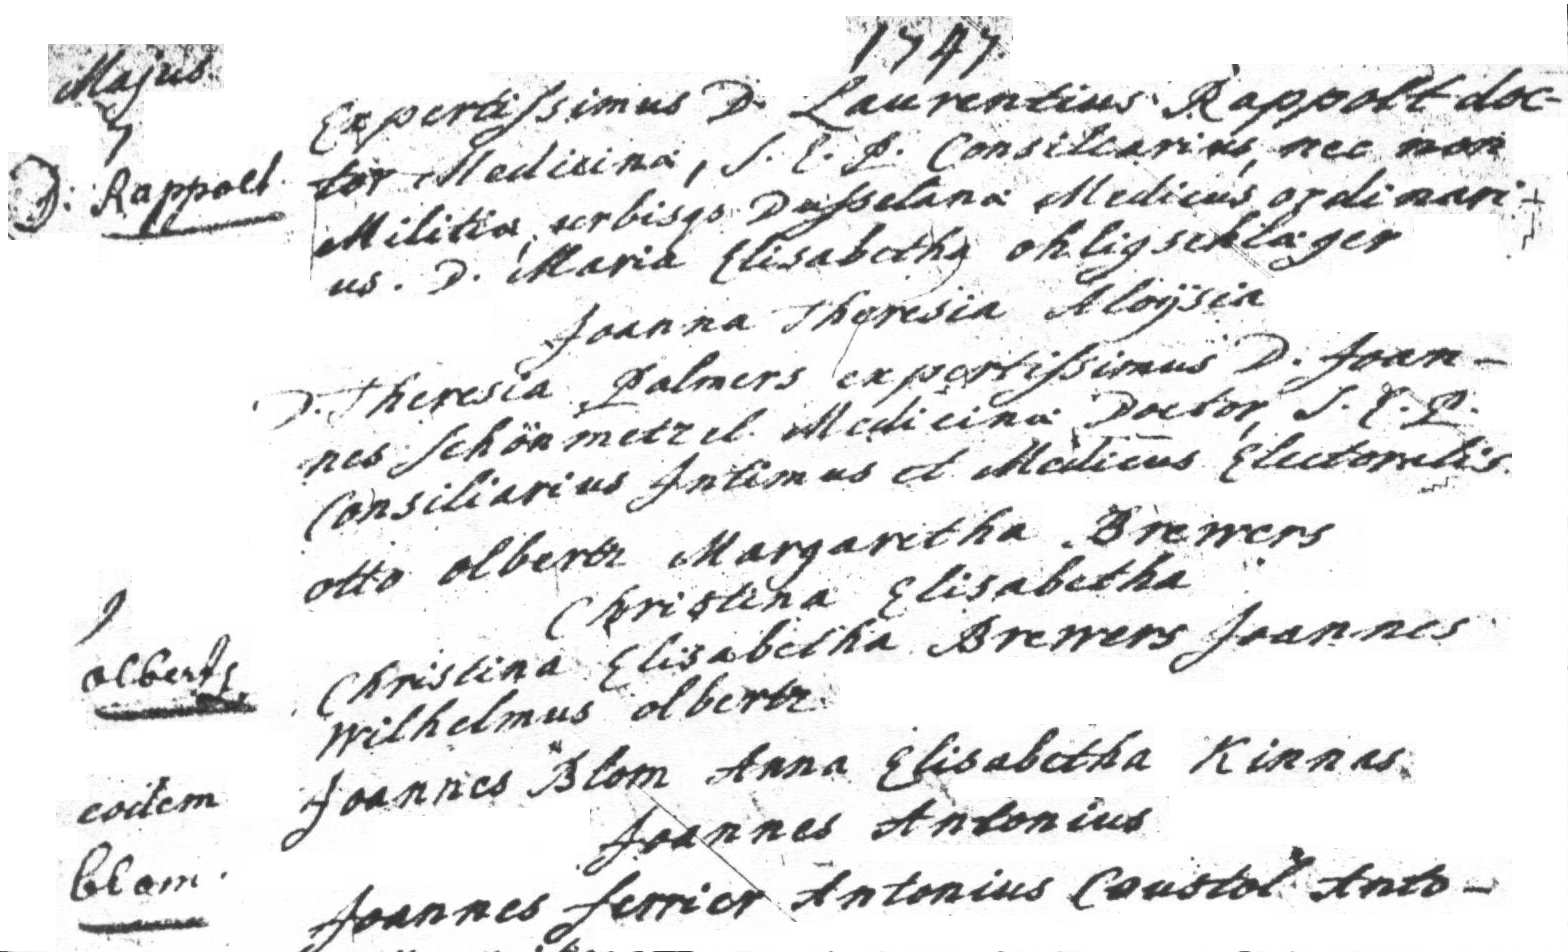 1747
Majus
7
D. Rappolt
Expertissimus D. Laurentius Rappolt doc-
tor Medicinæ, S. E. P. Consiliarius, nec non
Militiæ, urbisqs Dusselanæ Medicus ordinari-
us. D. Maria Elisabetha ohligschlager
Joanna Theresia Aloÿsia
D. Theresia Palmers expertissimus D. Joan-
nes Schönmetzel Medicinæ Doctor, S. E. P.
Consiliarius Intimus et Medicus Electoralis
9
olbertz
otto olbertz Margaretha Brewers
Christina Elisabetha
Christina Elisabetha Brewers Joannes
Wilhelmus olbertz
eoitem
blom.
Joannes Blom Anna Elisabetha Kinnas
Joannes Antonius
Joannes ferrier Antonius Coustol Anto-